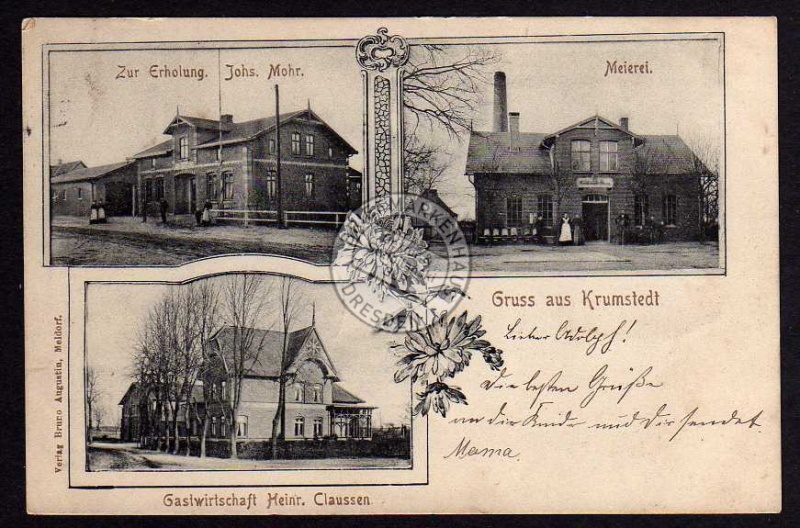 Zur Erholung. Johs. Mohr.
Meierei.
MARKENHAUS
DRESDEN
Gruss aus Krumstedt
Lieber Adolph!
Die besten Grüße
an die Kinder und Dir sendet
Mama.
Gastwirtschaft Heinr. Claussen
Verlag Bruno Augustin, Meldorf.